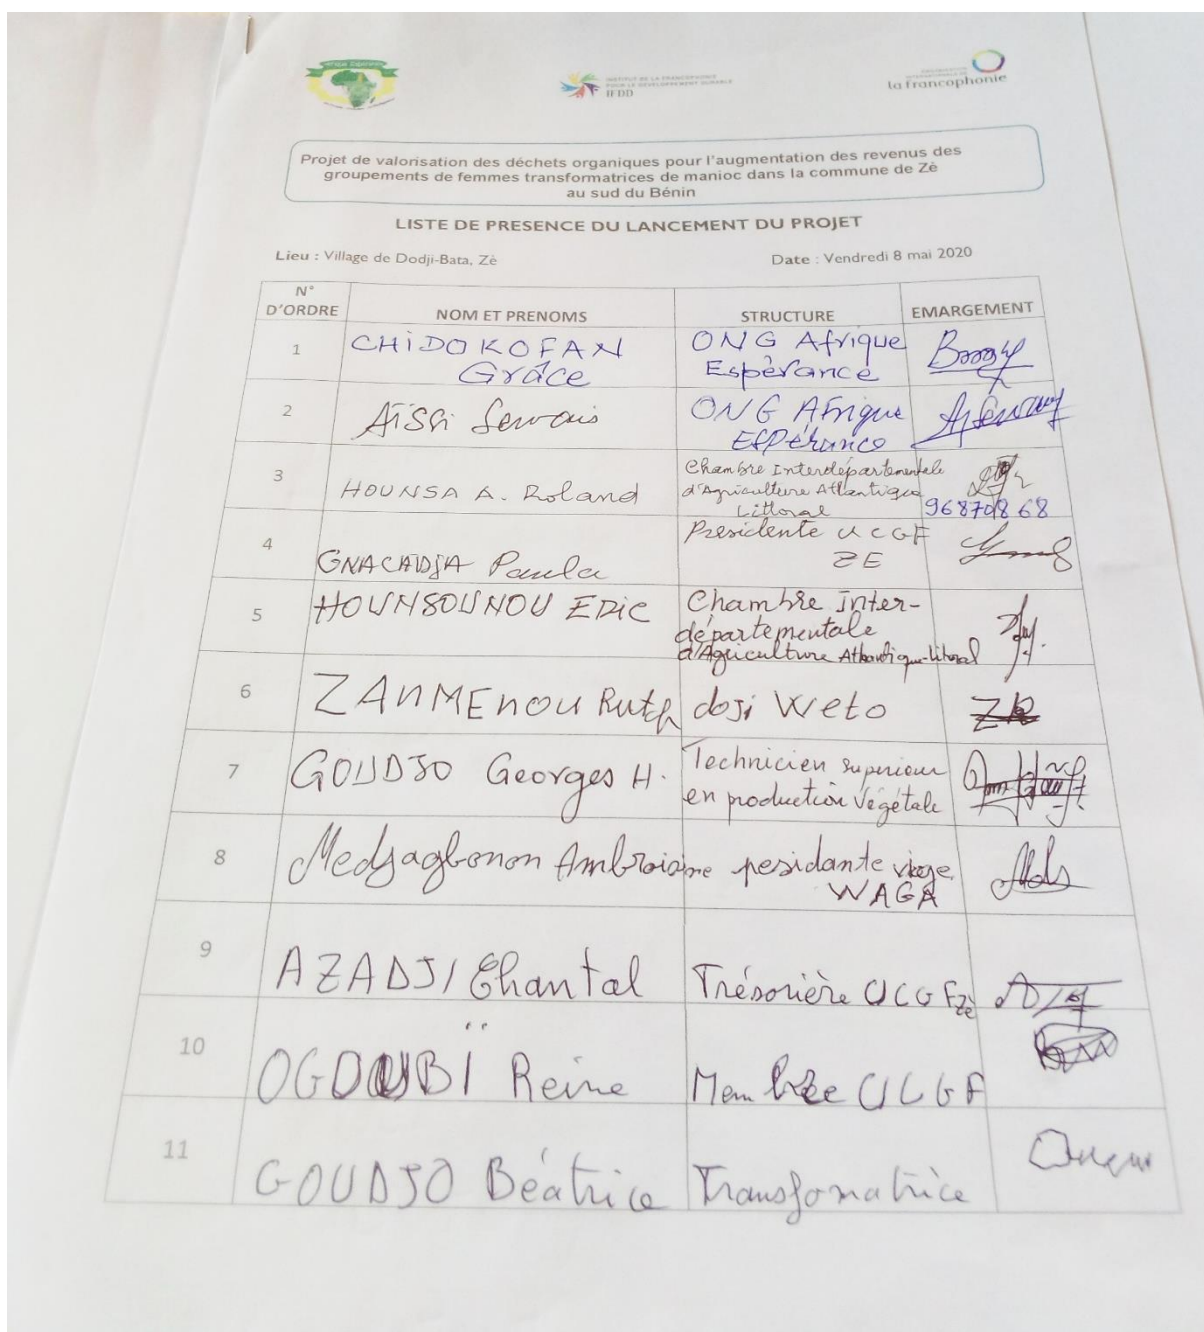 Afrique Espérance
INSTITUT DE LA FRANCOPHONIE
POUR LE DÉVELOPPEMENT DURABLE
IFDD
ORGANISATION
INTERNATIONALE DE
la francophonie
Projet de valorisation des déchets organiques pour l'augmentation des revenus des
groupements de femmes transformatrices de manioc dans la commune de Zè
au sud du Bénin
LISTE DE PRESENCE DU LANCEMENT DU PROJET
Lieu : Village de Dodji-Bata, Zè
Date : Vendredi 8 mai 2020
N°
D'ORDRE
NOM ET PRENOMS
STRUCTURE
EMARGEMENT
1
CHIDOKOFAN
Grâce
ONG Afrique
Espérance
2
AÏSSI Servais
ONG Afrique
ESPérance
3
HOUNSA A. Roland
Chambre Interdépartementale
d'Agriculture Atlantique
Littoral
96870868
4
GNACADJA Paula
Présidente UCGF
ZE
5
HOUNSOUNOU ERIC
Chambre inter-
départementale
d'Agriculture Atlantique-Litoral
6
ZANMEnou Ruth
doji Weto
7
GOUDJO Georges H.
Technicien superieur
en production Végétale
8
Medjagbonon Ambroisine
pesidante
WAGA
9
AZADJI Chantal
Trésorière UCGF Zè
10
OGOUBÏ Reine
Membre UCGF
11
GOUDJO Béatrice
Transfomatrice